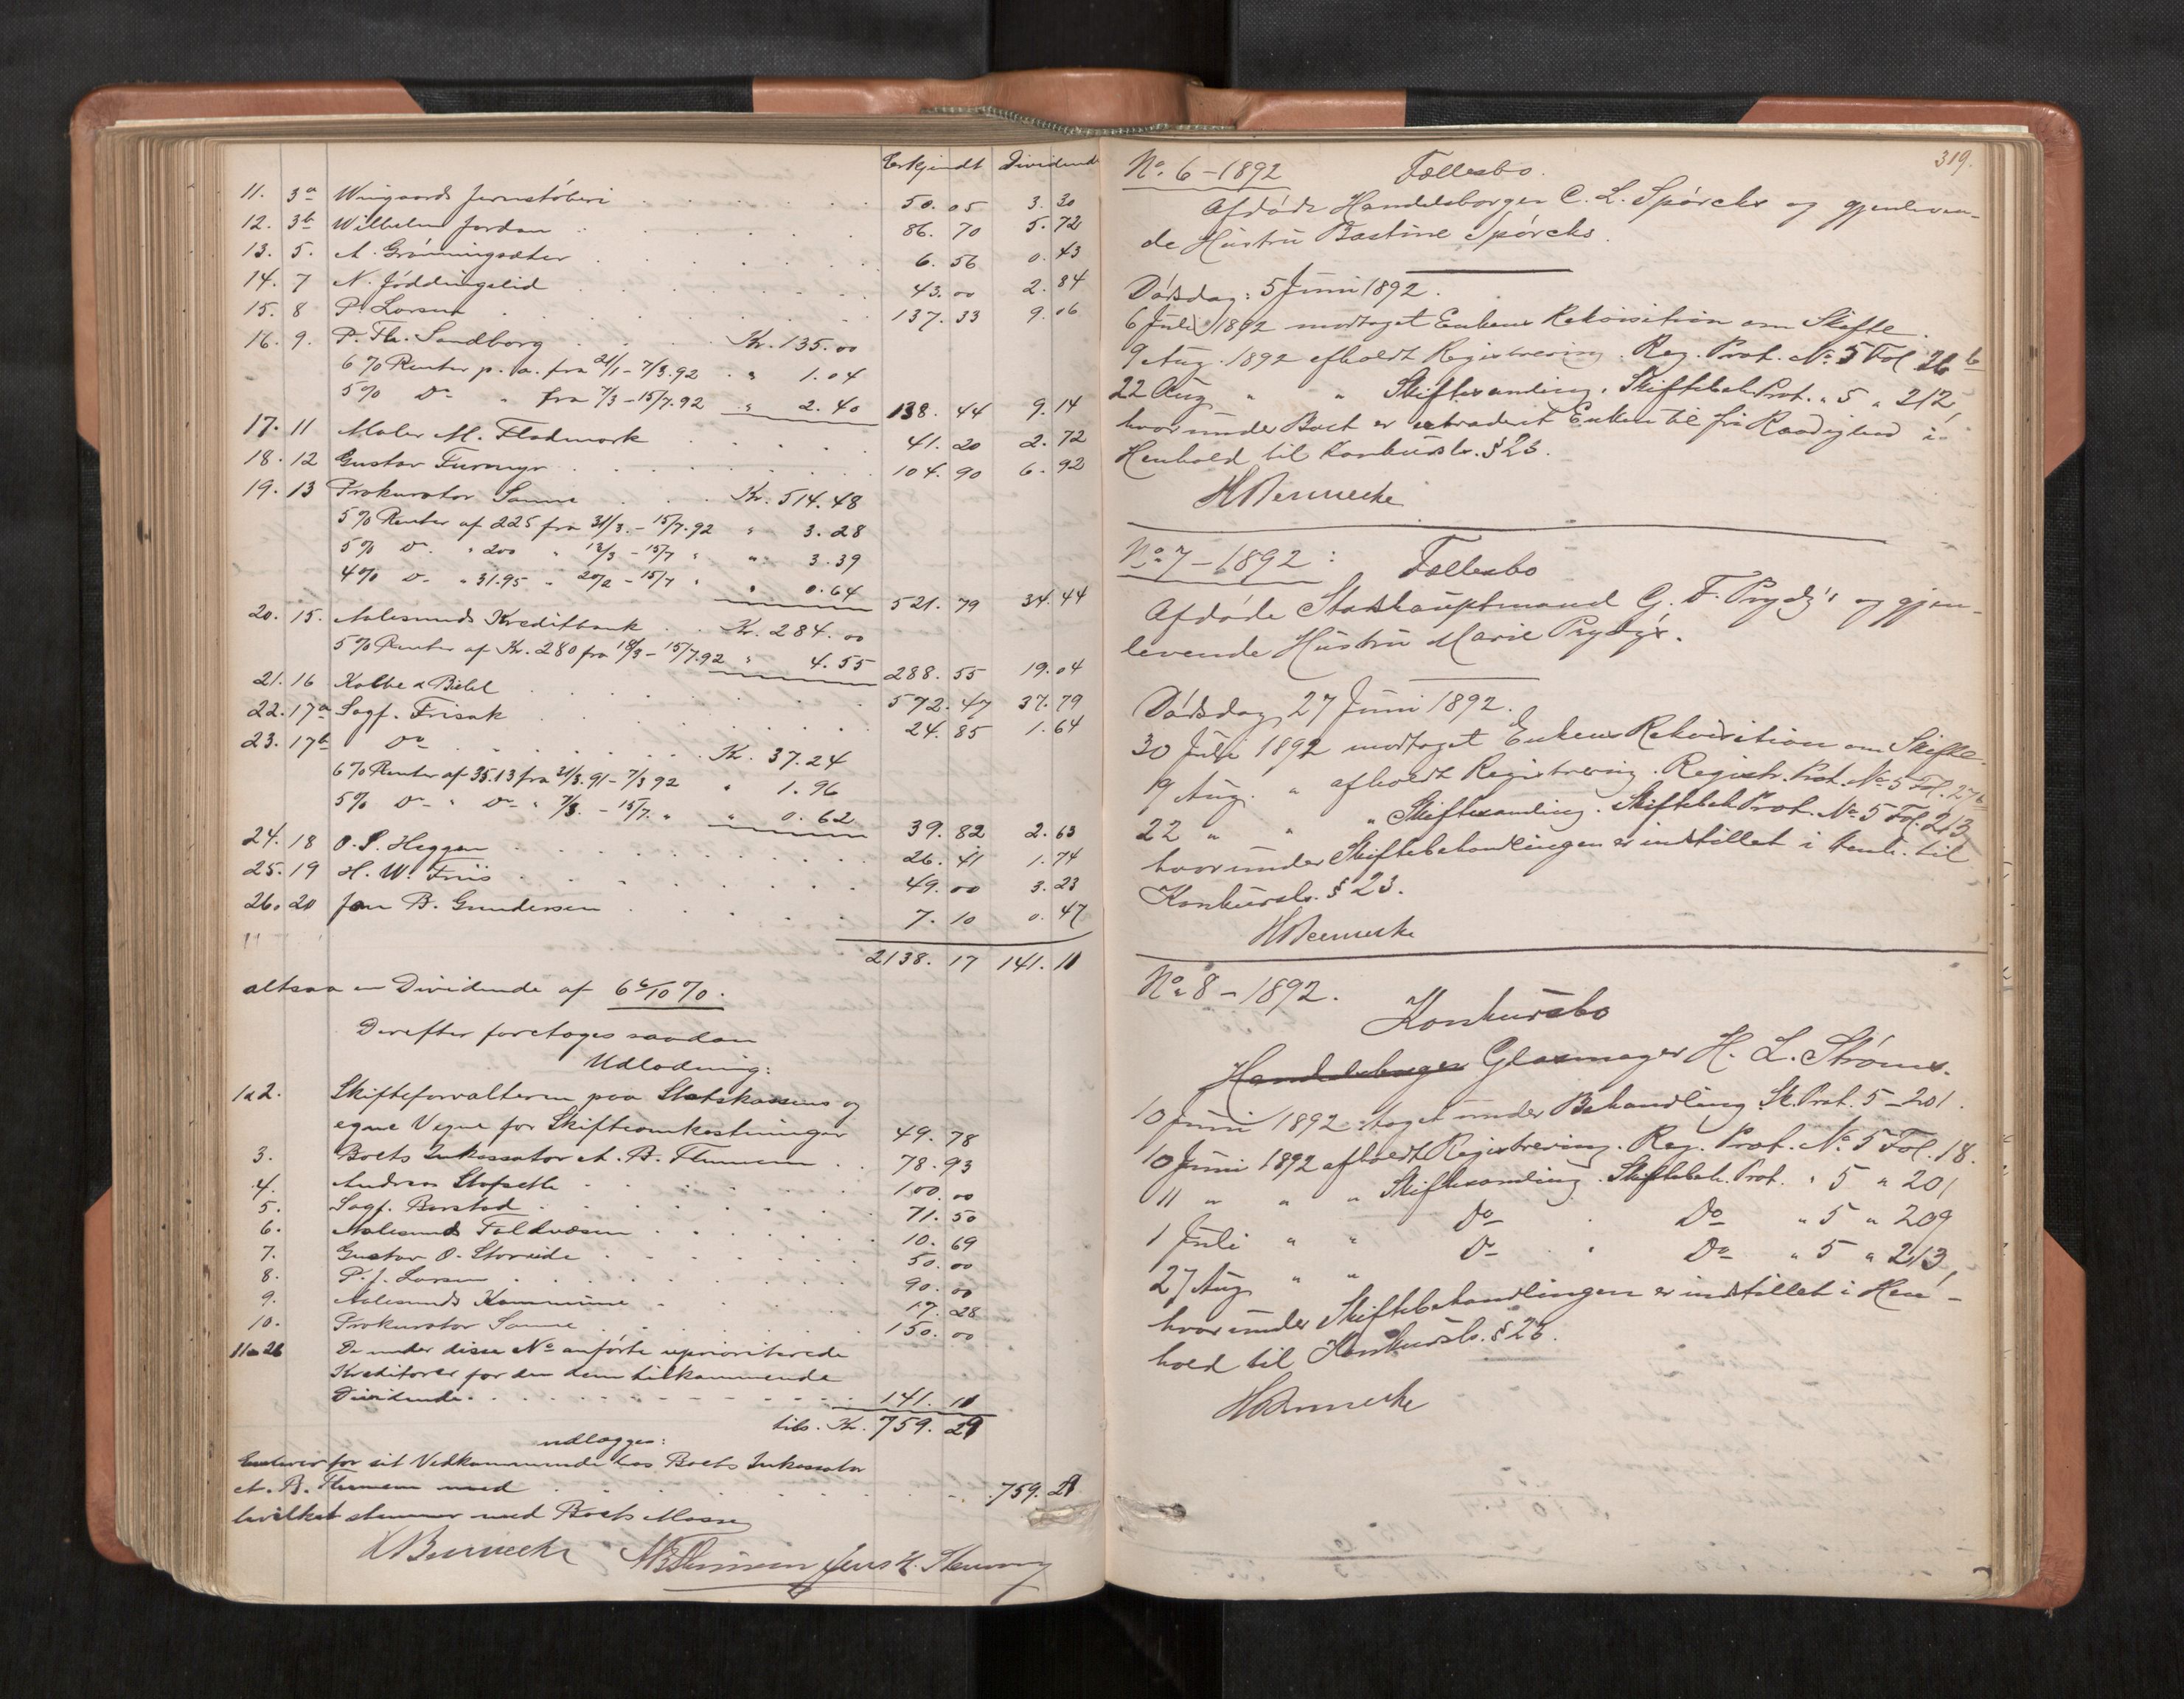 Erkjendt Dividende
11. 3a Wingaards Jernstøberi 50.05 3.30
12. 3b Wilhelm Jordan 86.70 5.72
13. 5. A. Grønningsæter 6.56 0.43
14. 7 N. Jøddingslid 43.00 2.84
15. 8 P. Larsen 137.33 9.06
16. 9. P. Fh. Sandborg Kr. 135.00
6% Renter p. a. fra 21/1 - 7/3.92 " 1.04
5% Do " fra 7/3 - 15/7.92 " 2.40 138.44 9.14
17. 11 Maler M. Flodmark 41.20 2.72
18. 12 Gustav Furmyr 104.90 6.92
19. 13 Prokurator Sanne Kr. 514.48
5% Renter af 225 fra 31/3. - 15/7.92 " 3.28
5% Do. " 200 " 12/3 - 15/7 " " 3.39
4% Do " 31.95 " 20/2 - 15/7 " " 0.64 521.79 34.44
20. 15. Aalesunds Kreditbank Kr. 284.00
5% Renter af Kr. 280 fra 18/3 - 15/7.92 " 4.55 288.55 19.04
21. 16 Kolbe & Biehl 572.47 37.79
22. 17a Sagf. Frisak 24.85 1.64
23. 17b Do Kr. 37.24
6% Renter af 35.13 fra 31/3.91 - 7/3 92 " 1.96
5% Do " Do " 7/3. - 15/7. " " 0.62 39.82 2.63
24. 18 O. P. Heggen 26.41 1.74
25. 19 H. W. Friis 49.00 3.23
26. 20 Jan B. Gundersen 7.10 0.47
2138.17 141.11
altsaa en Dividende af 6 6/10 %.
Derefter foretoges saadan
Udlodning:
1&2. Skifteforvalteren paa Statskassens og
egne Vegne for Skifteomkostninger 49.78
3. Boets Inkassator A. B. Flemmem 78.93
4. Andreas Stafseth 100.00
5. Sagf. Barstad 71.50
6. Aalesunds Toldvæsen 10.69
7. Gustav O. Storeide 50.00
8. P. J. Larsen 90.00
9. Aalesunds Kommune 17.28
10. Prokurator Sanne 150.00
11 a 26 De under disse No anførte uprioriterede
Kreditorer for den dem tilkommende
Dividende 141.11
tils. Kr. 759.29
udlægges:
Enhver for sit Vedkommende hos Boets Inkassator
A. B. Flemmem med 759.29
hvilket stemmer med Boets Masse
HBennecke ABFlemmem Jens H. Flemmem
319.
No. 6 - 1892 Fællesbo.
Afdøde Handelsborger C. L. Spørcks og gjenleven-
de Hustru Bastine Spørcks.
Dødsdag: 5 Juni 1892.
6 Juli 1892 modtaget Enkens Rekvisition om Skifte.
9 Aug. 1892 afholdt Registrering. Reg. Prot. No. 5 Fol 26b
22 Aug " " Skiftesamling. Skiftebeh. Prot. " 5 " 212,
hvorunder Boet er extraderet Enken til fri Raadighed i
Henhold til Konkursl. § 23.
HBennecke
No. 7 - 1892: Fællesbo
Afdøde Stadshauptmand G. F. Prydz's og gjen-
levende Hustru Marie Prydz's.
Dødsdag 27 Juni 1892.
30 Juli 1892 modtaget Enkens Rekvisition om Skifte.
19 Aug. " afholdt Registrering. Registr. Prot. No. 5 Fol. 27b
22 " " " Skiftesamling. Skiftebeh. Prot. No. 5 Fol. 213
hvorunder Skiftebehandlingen er indstillet i Henh. til
Konkursl. § 23.
HBennecke
No. 8 - 1892.
Konkursbo
Handelsborger Glasmager H. L. Strøms.
10 Juni 1892 taget under Behandling Sk. Prot. 5 - 201.
10 Juni 1892 afholdt Registrering. Reg. Prot. No. 5 Fol. 18.
11 " " " Skiftesamling. Skiftebeh. Prot. " 5 " 201
1 Juli " " Do Do " 5 " 209
27 Aug " " Do Do " 5 " 213,
hvorunder Skiftebehandlingen er indstillet i Hen-
hold til Konkursl. § 23.
HBennecke